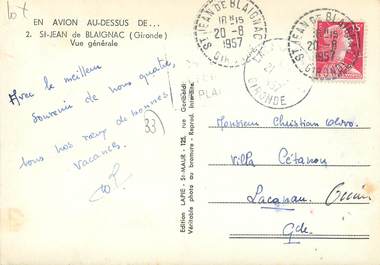 EN AVION AU-DESSUS DE...
2. St-JEAN de BLAIGNAC (Gironde)
Vue générale
Avec le meilleur
souvenir de nous quatre,
tous nos vœux de bonnes
vacances.
33
Edition LAPIE - St-MAUR - 125, rue Garibaldi
Véritable photo au bromure - Reprod. Interdite.
ST JEAN DE BLAIGNAC
18H15
20-8
1957
GIRONDE
ST JEAN DE BLAIGNAC
18H15
20-8
1957
GIRONDE
21
GIRONDE
15
Monsieur Christian
Villa
Lacanau Océan
Gde.